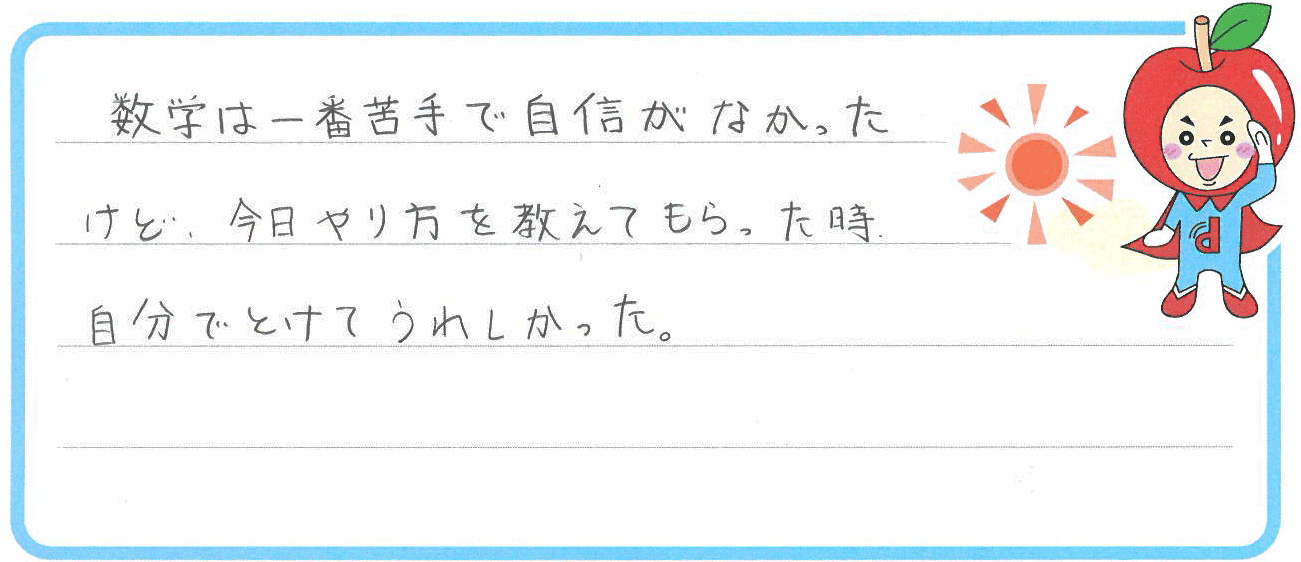 数学は一番苦手で自信がなかった
けど、今日やり方を教えてもらった時、
自分でとけてうれしかった。